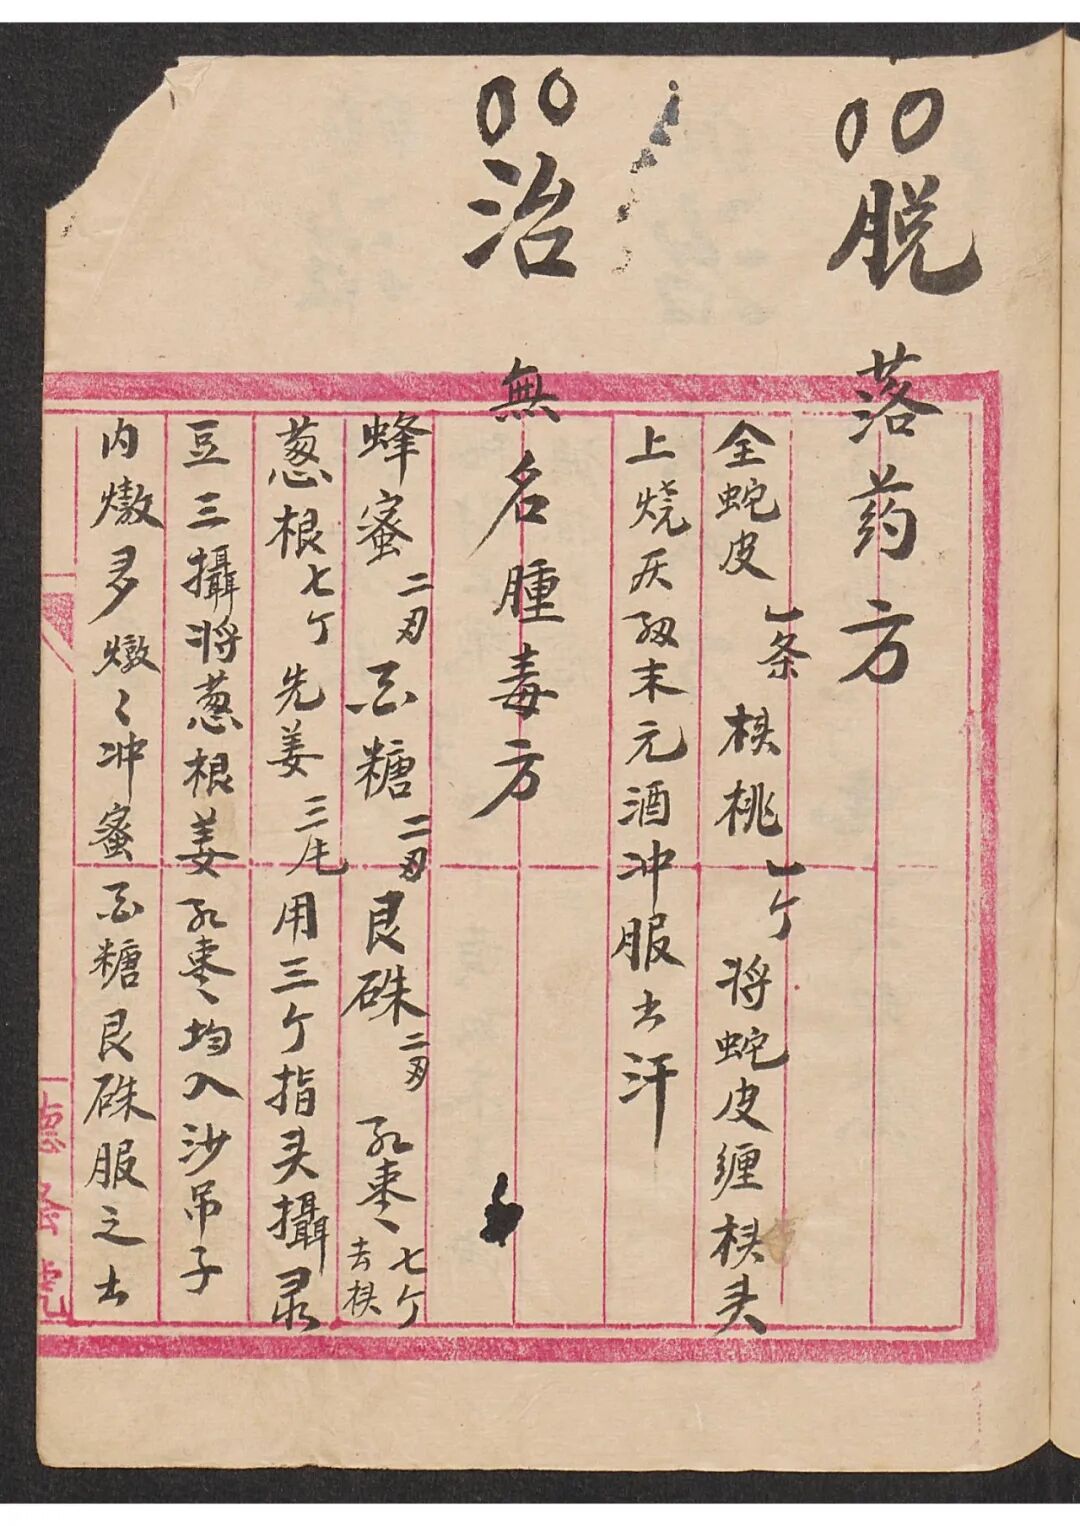 脱落药方
全蛇皮一条核桃一个将蛇皮缠核头
上烧灰细末元酒冲服出汗
治無名腫毒方
蜂蜜二两白糖二两艮硃二两红枣七个去核
葱根七个先姜三片用三个指头攝录
豆三攝将葱根姜红枣均入沙吊子
内燉多燉々冲蜜白糖艮硃服之出